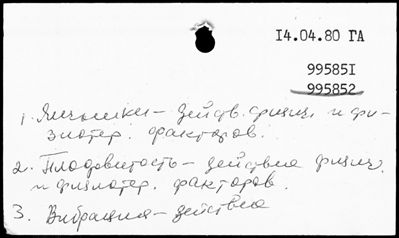 14.04.80 ГА
995851
995852
1. Яичники – действ. физич. и фи-
зиотер. факторов.
2. Плодовитость – действие физич.
и физиотер. факторов.
3. Вибрация – действие